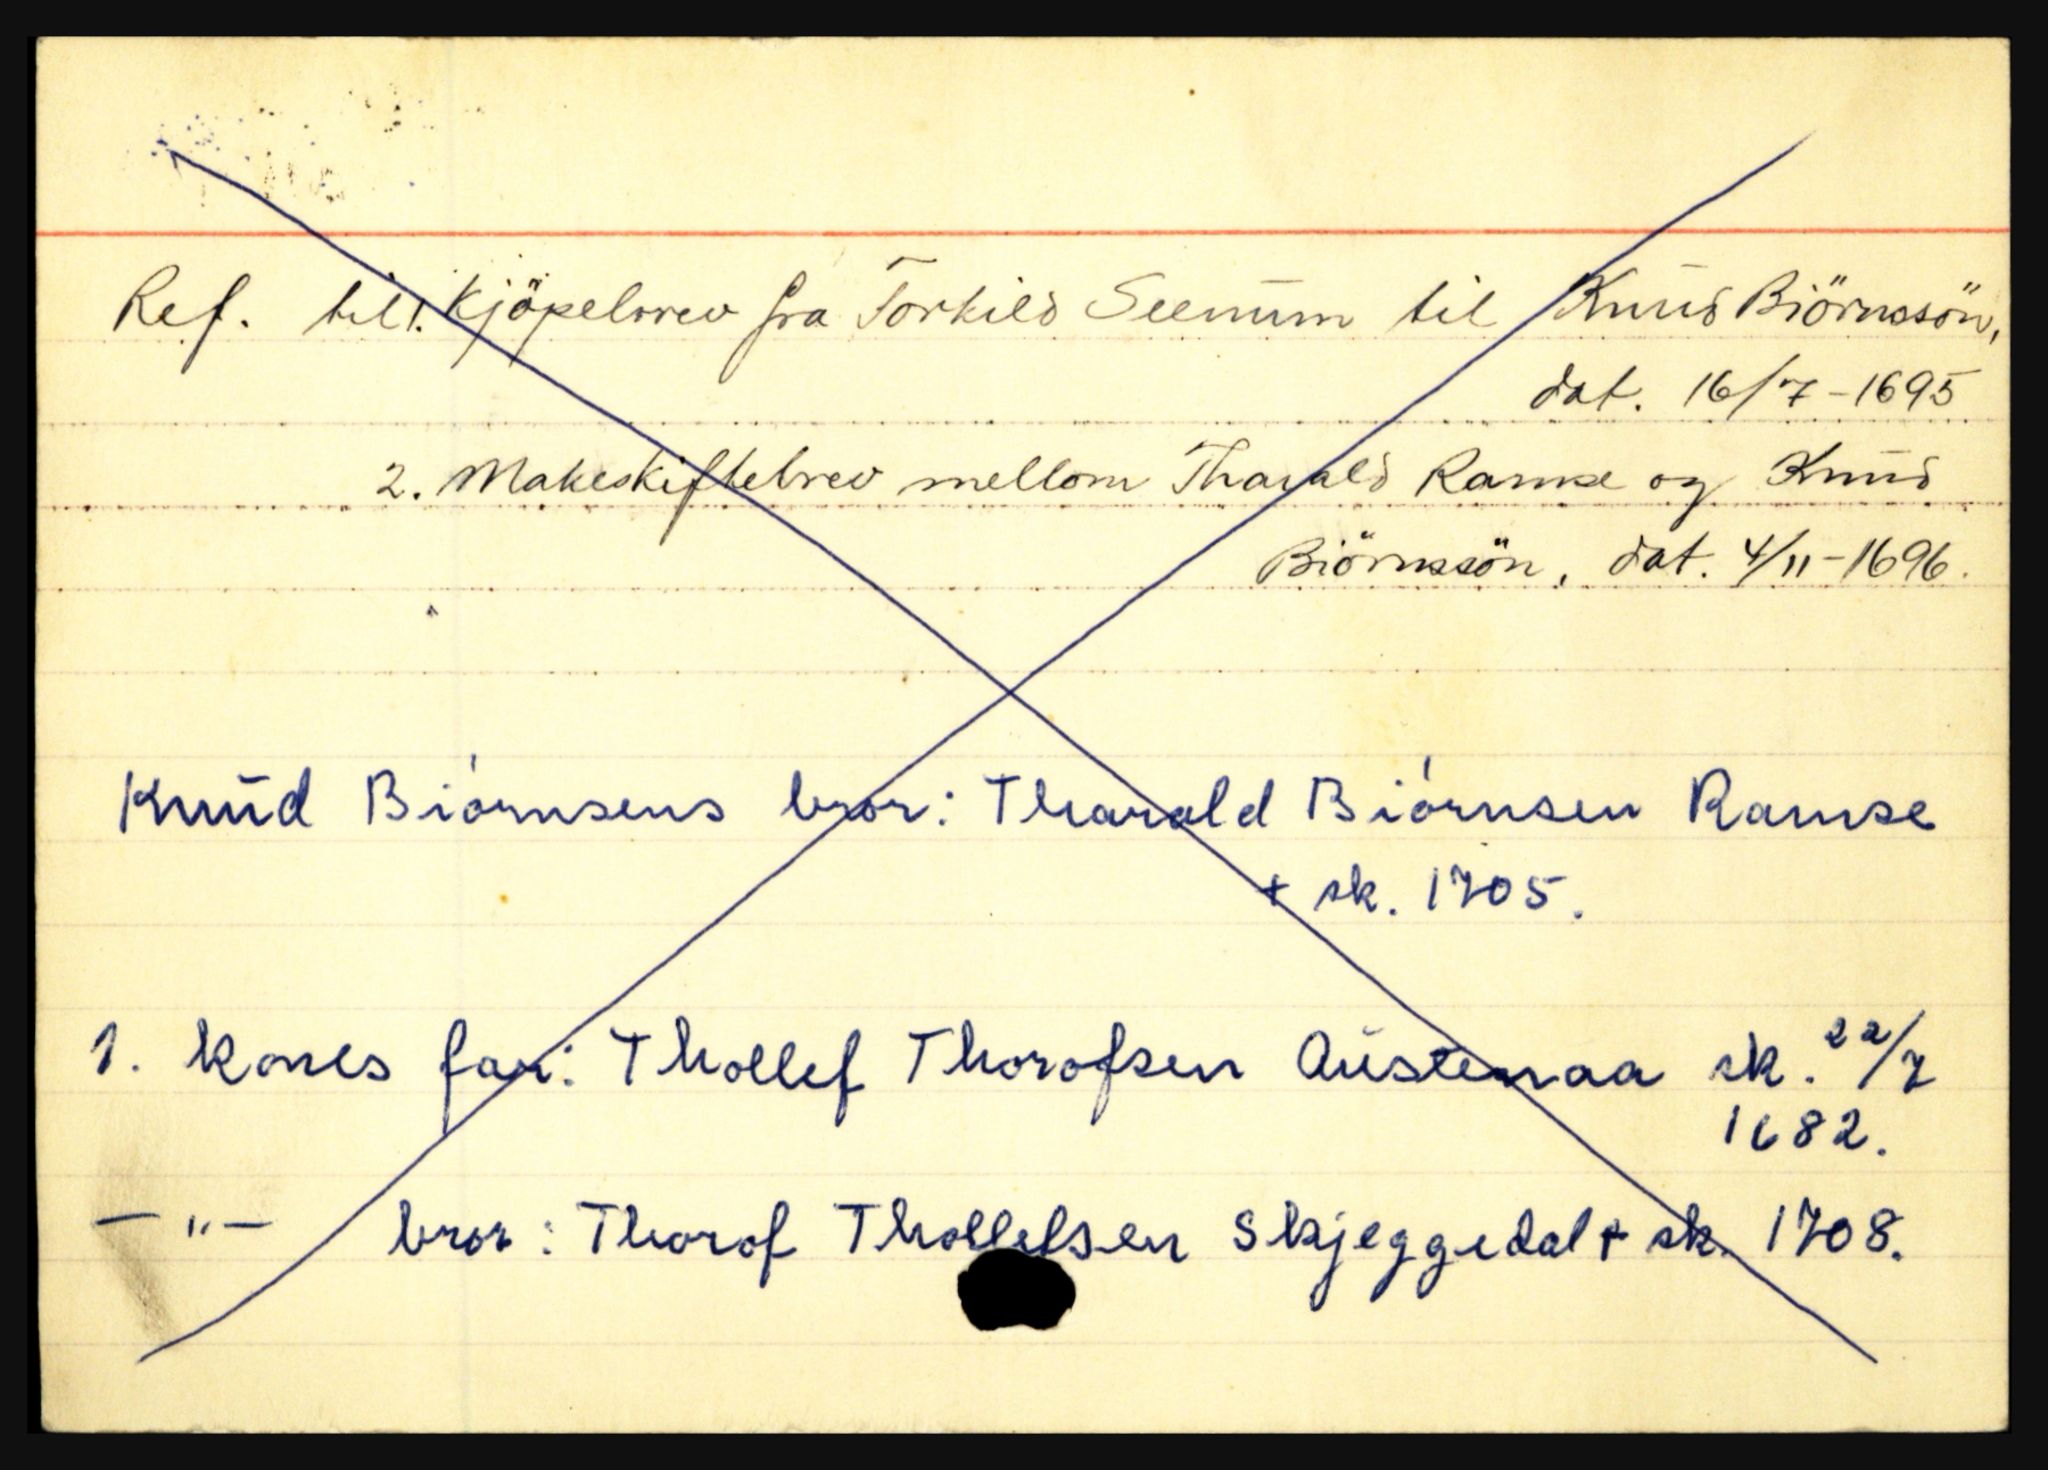 Ref. til 1. Kjöpebrev fra Torkild Seenum til Knud Björnssön,
dat. 16/7-1695
2. Makeskiftebrev mellom Tharald Ramse og Knud
Björnssön, dat. 4/11-1696.
Knud Biórnsens bror: Tharald Biórnsen Ramse
+ sk. 1705.
1. kones far: Thollef Thorofsen Austenaa sk. 22/7
1682.
— " — bror: Thorof Thollefsen Skjeggedal + sk. 1708.